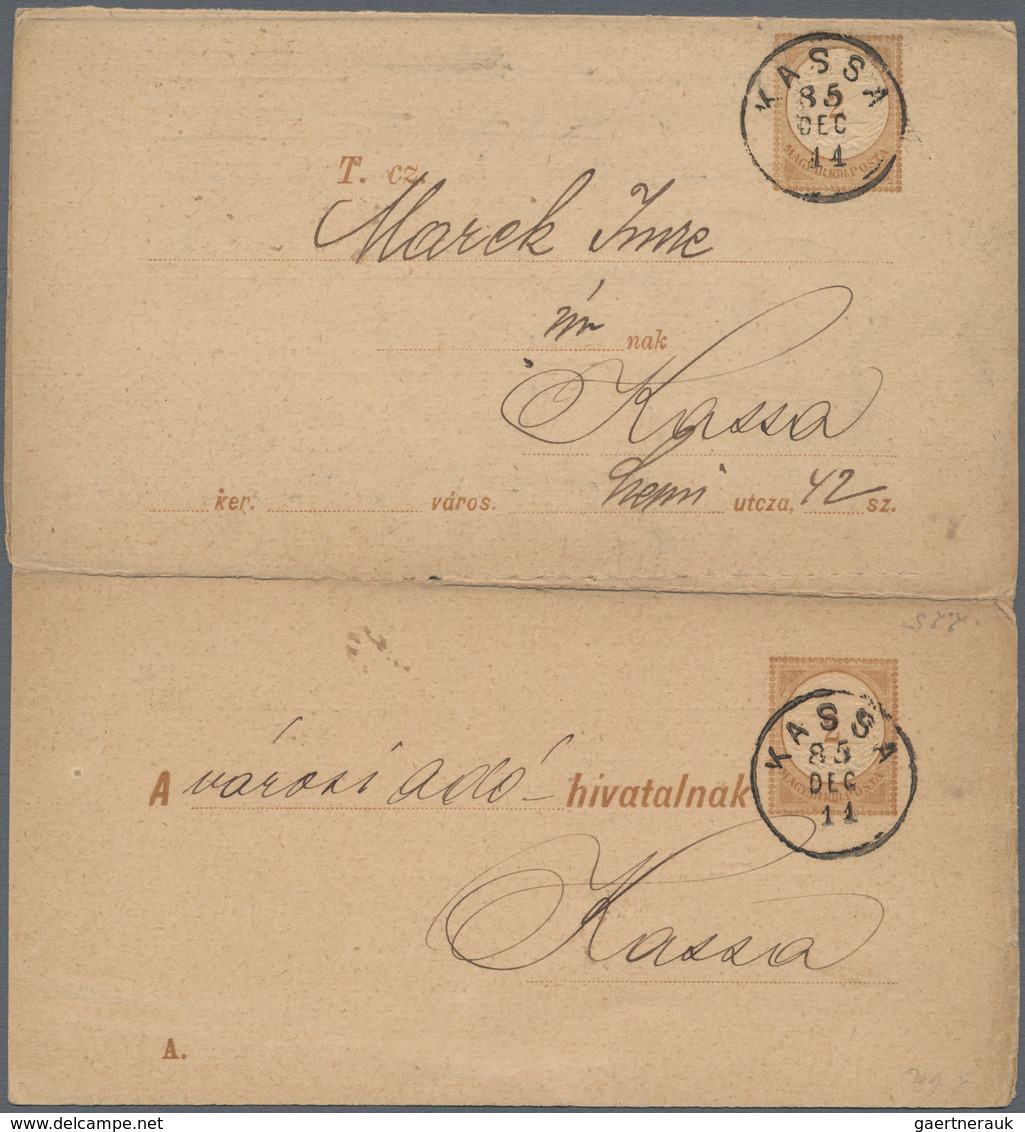 KASSA
85
DEC
11
2
MAGYAR KIR. POSTA
T. cz.
Marek Imre
úr nak
Kassa
ker. város. utcza, 42 sz.
522
KASSA
85
DEC
11
2
MAGYAR KIR. POSTA
A városi adó- hivatalnak
Kassa
A.
gaertnerauk